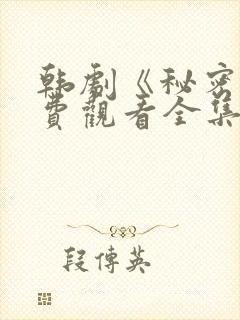 韩剧《秘密
费觀看全集
段傳英